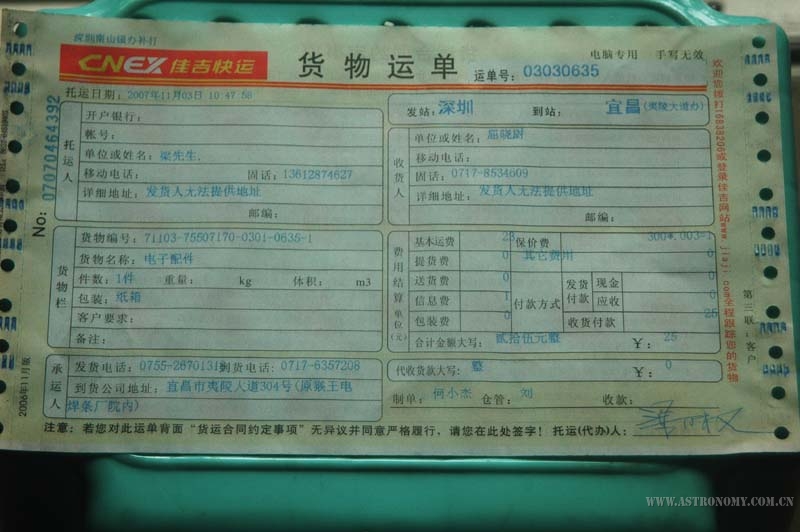 深圳南山镇办补打
CNEX 佳吉快运
货物运单
电脑专用 手写无效
运单号：03030635
托运日期：2007年11月03日 10:47:58
发站：深圳 到站：宜昌(夷陵大道办)
No: 07070464392
托运人
开户银行：
帐号：
单位或姓名：梁先生.
移动电话： 固话：13612874627
详细地址：发货人无法提供地址
邮编：
收货人
单位或姓名：屈晓尉
移动电话：
固话：0717-8534609
详细地址：发货人无法提供地址
邮编：
货物栏
货物编号：71103-75507170-0301-0635-1
货物名称：电子配件
件数：1件 重量： kg 体积： m3
包装：纸箱
客户要求：
备注：
费用结算 单位(元)
基本运费 23 保价费 300*.003=1
提货费 0 其它费用 0
送货费 0
信息费 1
包装费 0
付款方式
发货付款 现金 0
应收 0
收货付款 25
合计金额大写：贰拾伍元整 ￥：25
承运人
发货电话：0755-2670131 到货电话：0717-6357208
到货公司地址：宜昌市夷陵人道304号(原猴王电
焊条厂院内)
代收货款大写：整 ￥：0
制单：何小杰 仓管：刘 收款：
注意：若您对此运单背面“货运合同约定事项”无异议并同意严格履行，请您在此处签字！托运(代办)人：
2006年11月版
欢迎您拨打16838206或登录佳吉网站www.jiaji.com全程跟踪您的货物
第三联：客户
WWW.ASTRONOMY.COM.CN